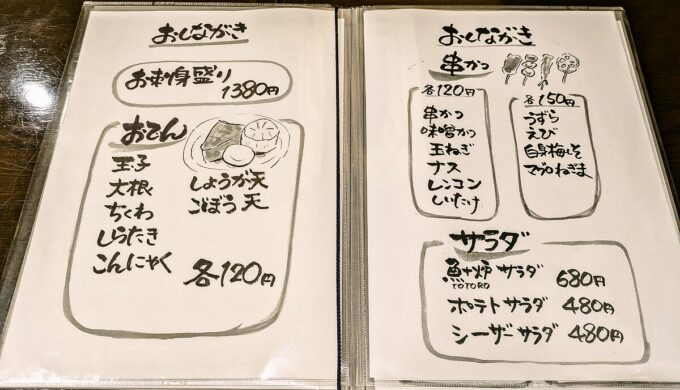 おしながき
お刺身盛り
1380円
おでん
玉子
大根
ちくわ
しらたき
こんにゃく
しょうが天
ごぼう天
各120円
おしながき
串かつ
各120円
串かつ
味噌かつ
玉ねぎ
ナス
レンコン
しいたけ
各150円
うずら
えび
白身梅しそ
マグロねぎま
サラダ
魚十炉サラダ 680円
TOTORO
ポテトサラダ 480円
シーザーサラダ 480円